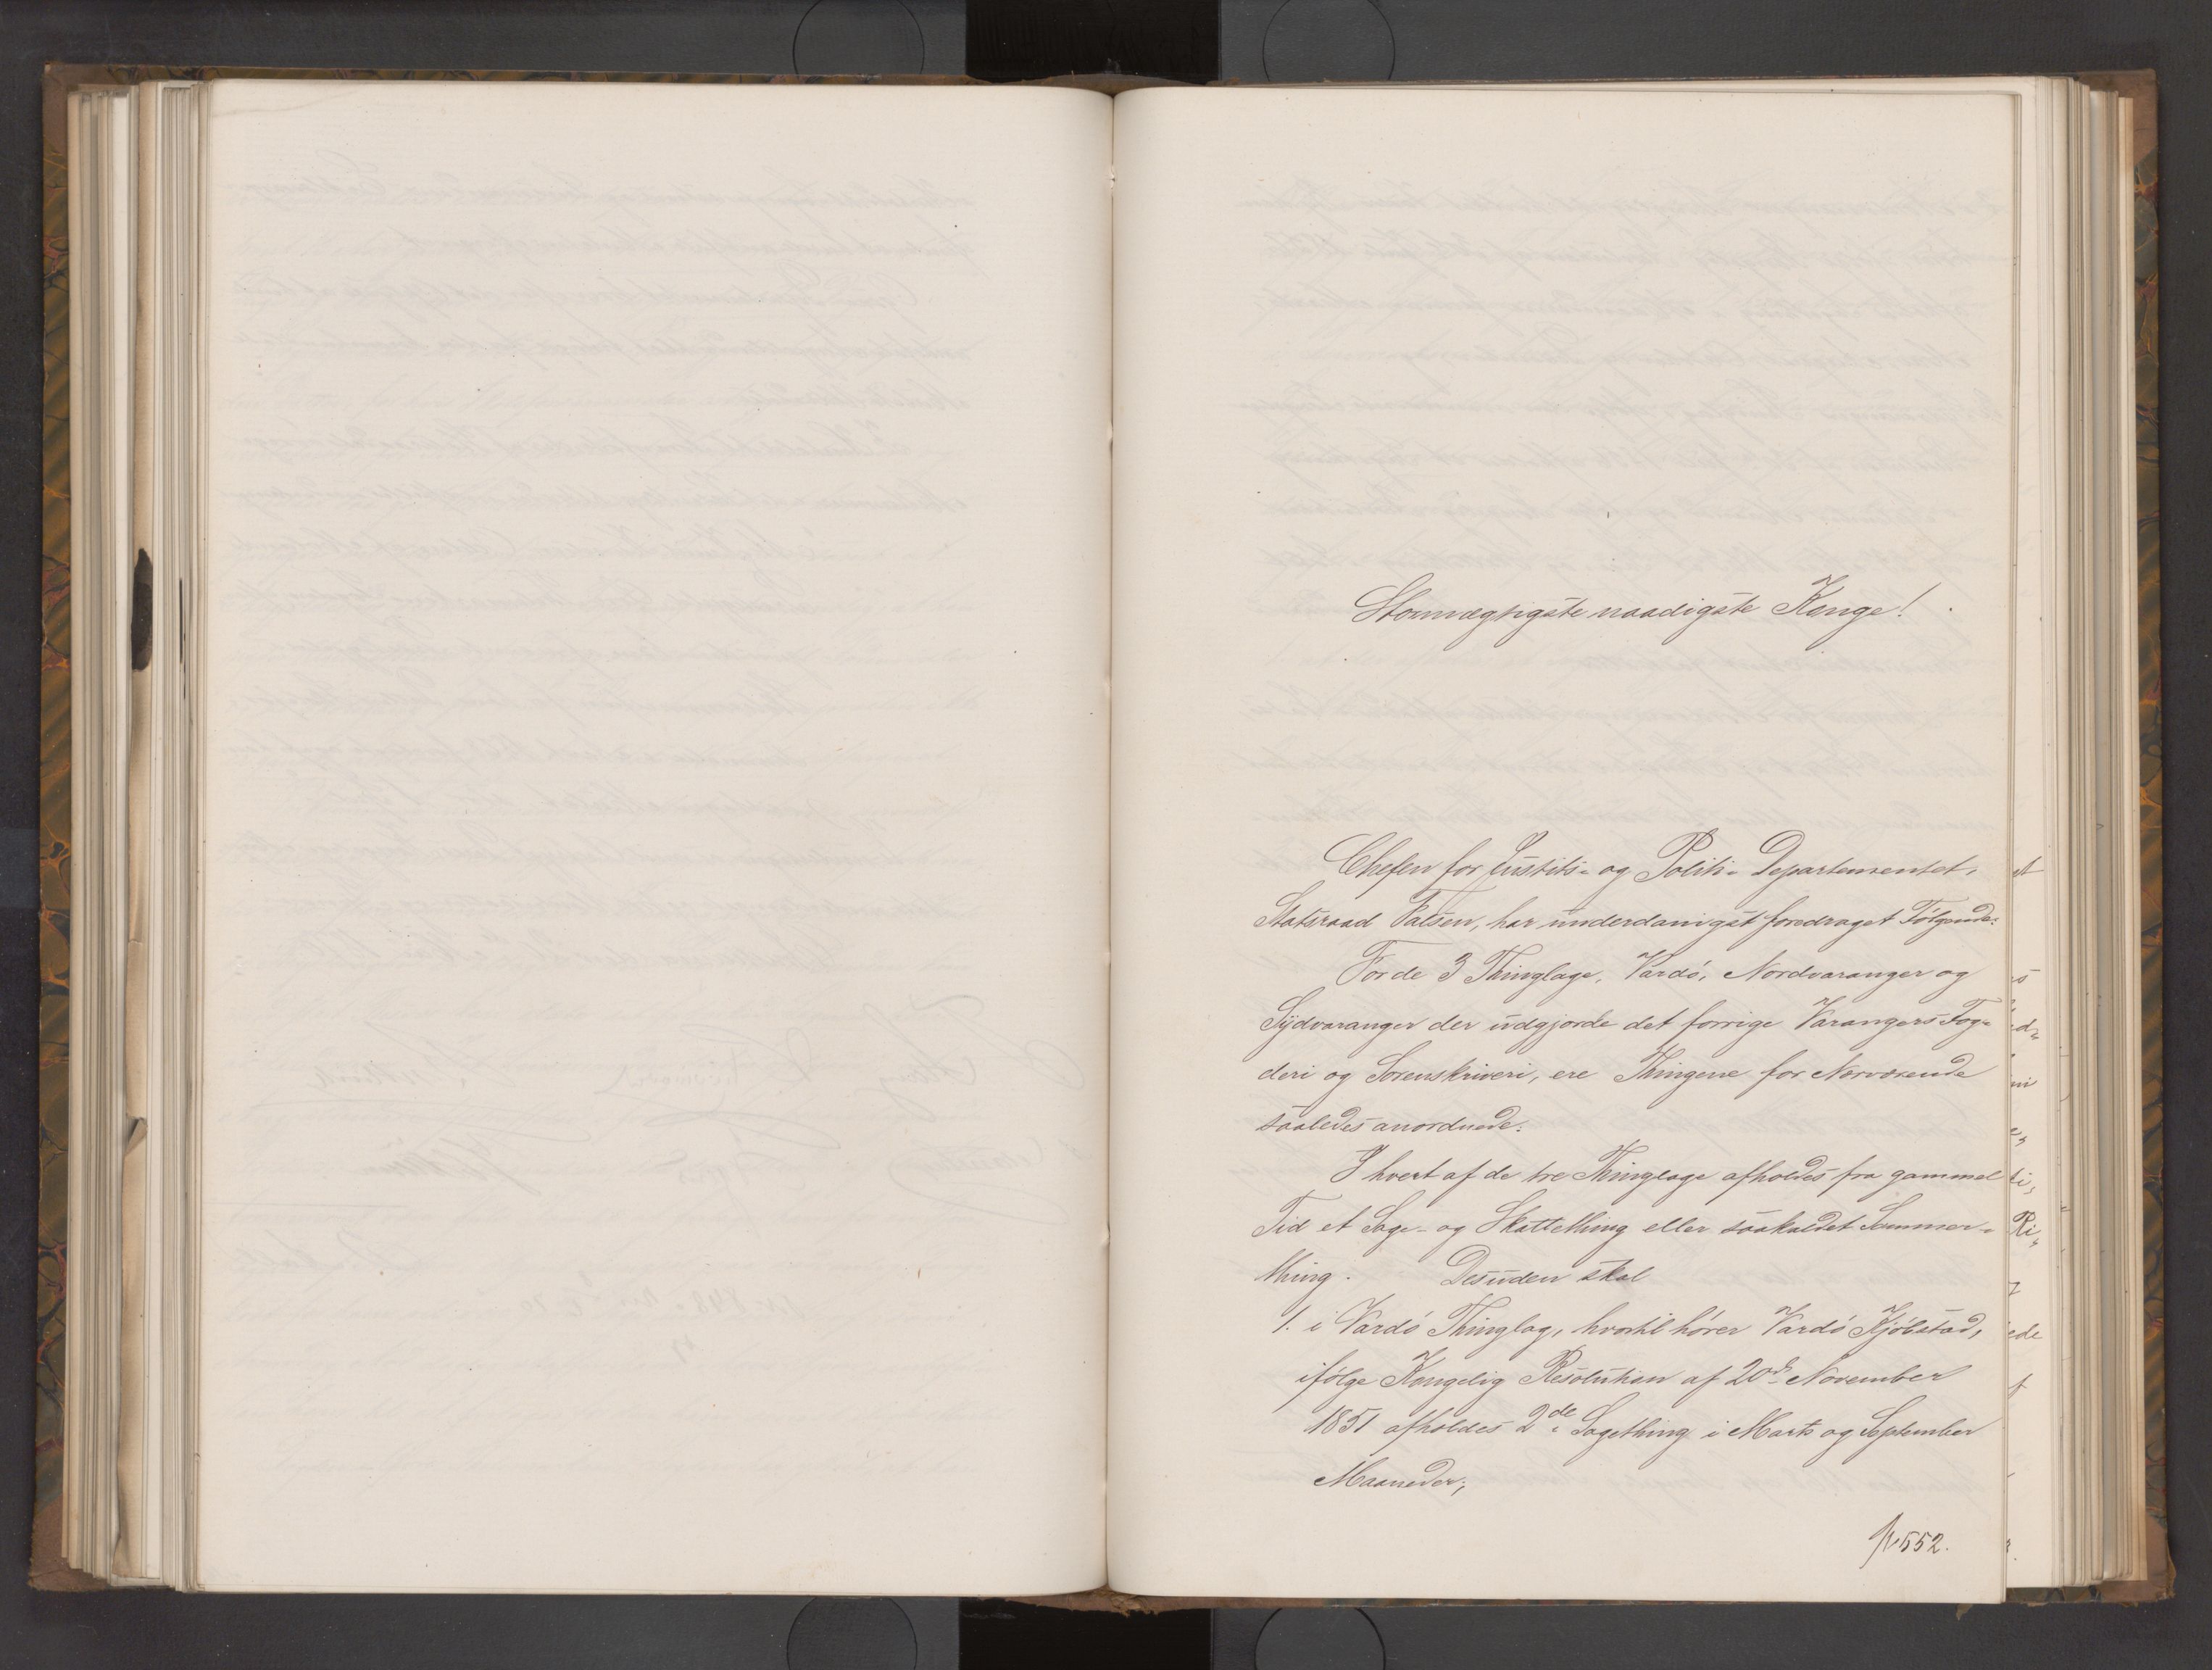 Stormægtigste naadigste Konge!
Chefen for Justits- og Politi-Departementet,
Statsraad Falsen, har underdanigst foredraget Følgende:
For de 3 Thinglage, Vardø, Nordvaranger og
Sydvaranger der udgjorde det forrige Varangers Fog-
deri og Sorenskriveri, ere Thingene for Nærværende
saaledes anordnede:
I hvert af de tre Thinglage afholdes fra gammel
Tid et Sage- og Skattething eller saakaldet Sommer-
thing. Desuden skal
1. i Vardø Thinglag, hvortil hører Vardø Kjøbstad,
ifølge Kongelig Resolution af 20de November
1851 afholdes 2de Sagething i Marts og September
Maaneder;
552.